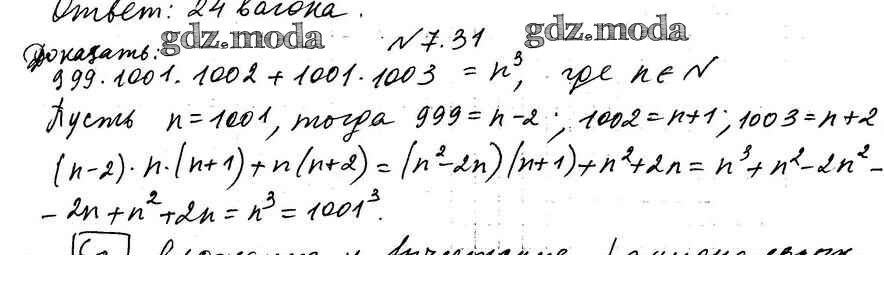 Ответ: 24 вагона.
Доказать: gdz.moda №7.31 gdz.moda
999·1001·1002+1001·1003 = n³, где n∈N
Пусть n=1001, тогда 999=n-2; 1002=n+1; 1003=n+2
(n-2)·n·(n+1)+n(n+2)=(n²-2n)(n+1)+n²+2n=n³+n²-2n²-
-2n+n²+2n=n³=1001³.